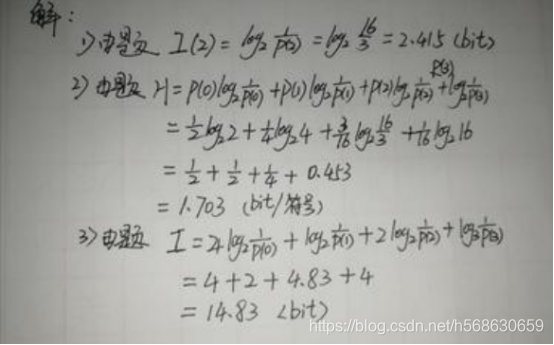 解:
1) 由题意 I(2) = log₂ 1/p(2) = log₂ 16/3 = 2.415 (bit)
2) 由题意 H = p(0)log₂ 1/p(0) + p(1)log₂ 1/p(1) + p(2)log₂ 1/p(2) + p(3)log₂ 1/p(3)
= 1/2 log₂2 + 1/4 log₂4 + 3/16 log₂ 16/3 + 1/16 log₂16
= 1/2 + 1/2 + 1/4 + 0.453
= 1.703 (bit/符号)
3) 由题意 I = 4log₂ 1/p(0) + log₂ 1/p(1) + 2log₂ 1/p(2) + log₂ 1/p(3)
= 4 + 2 + 4.83 + 4
= 14.83 (bit)
https://blog.csdn.net/h568630659